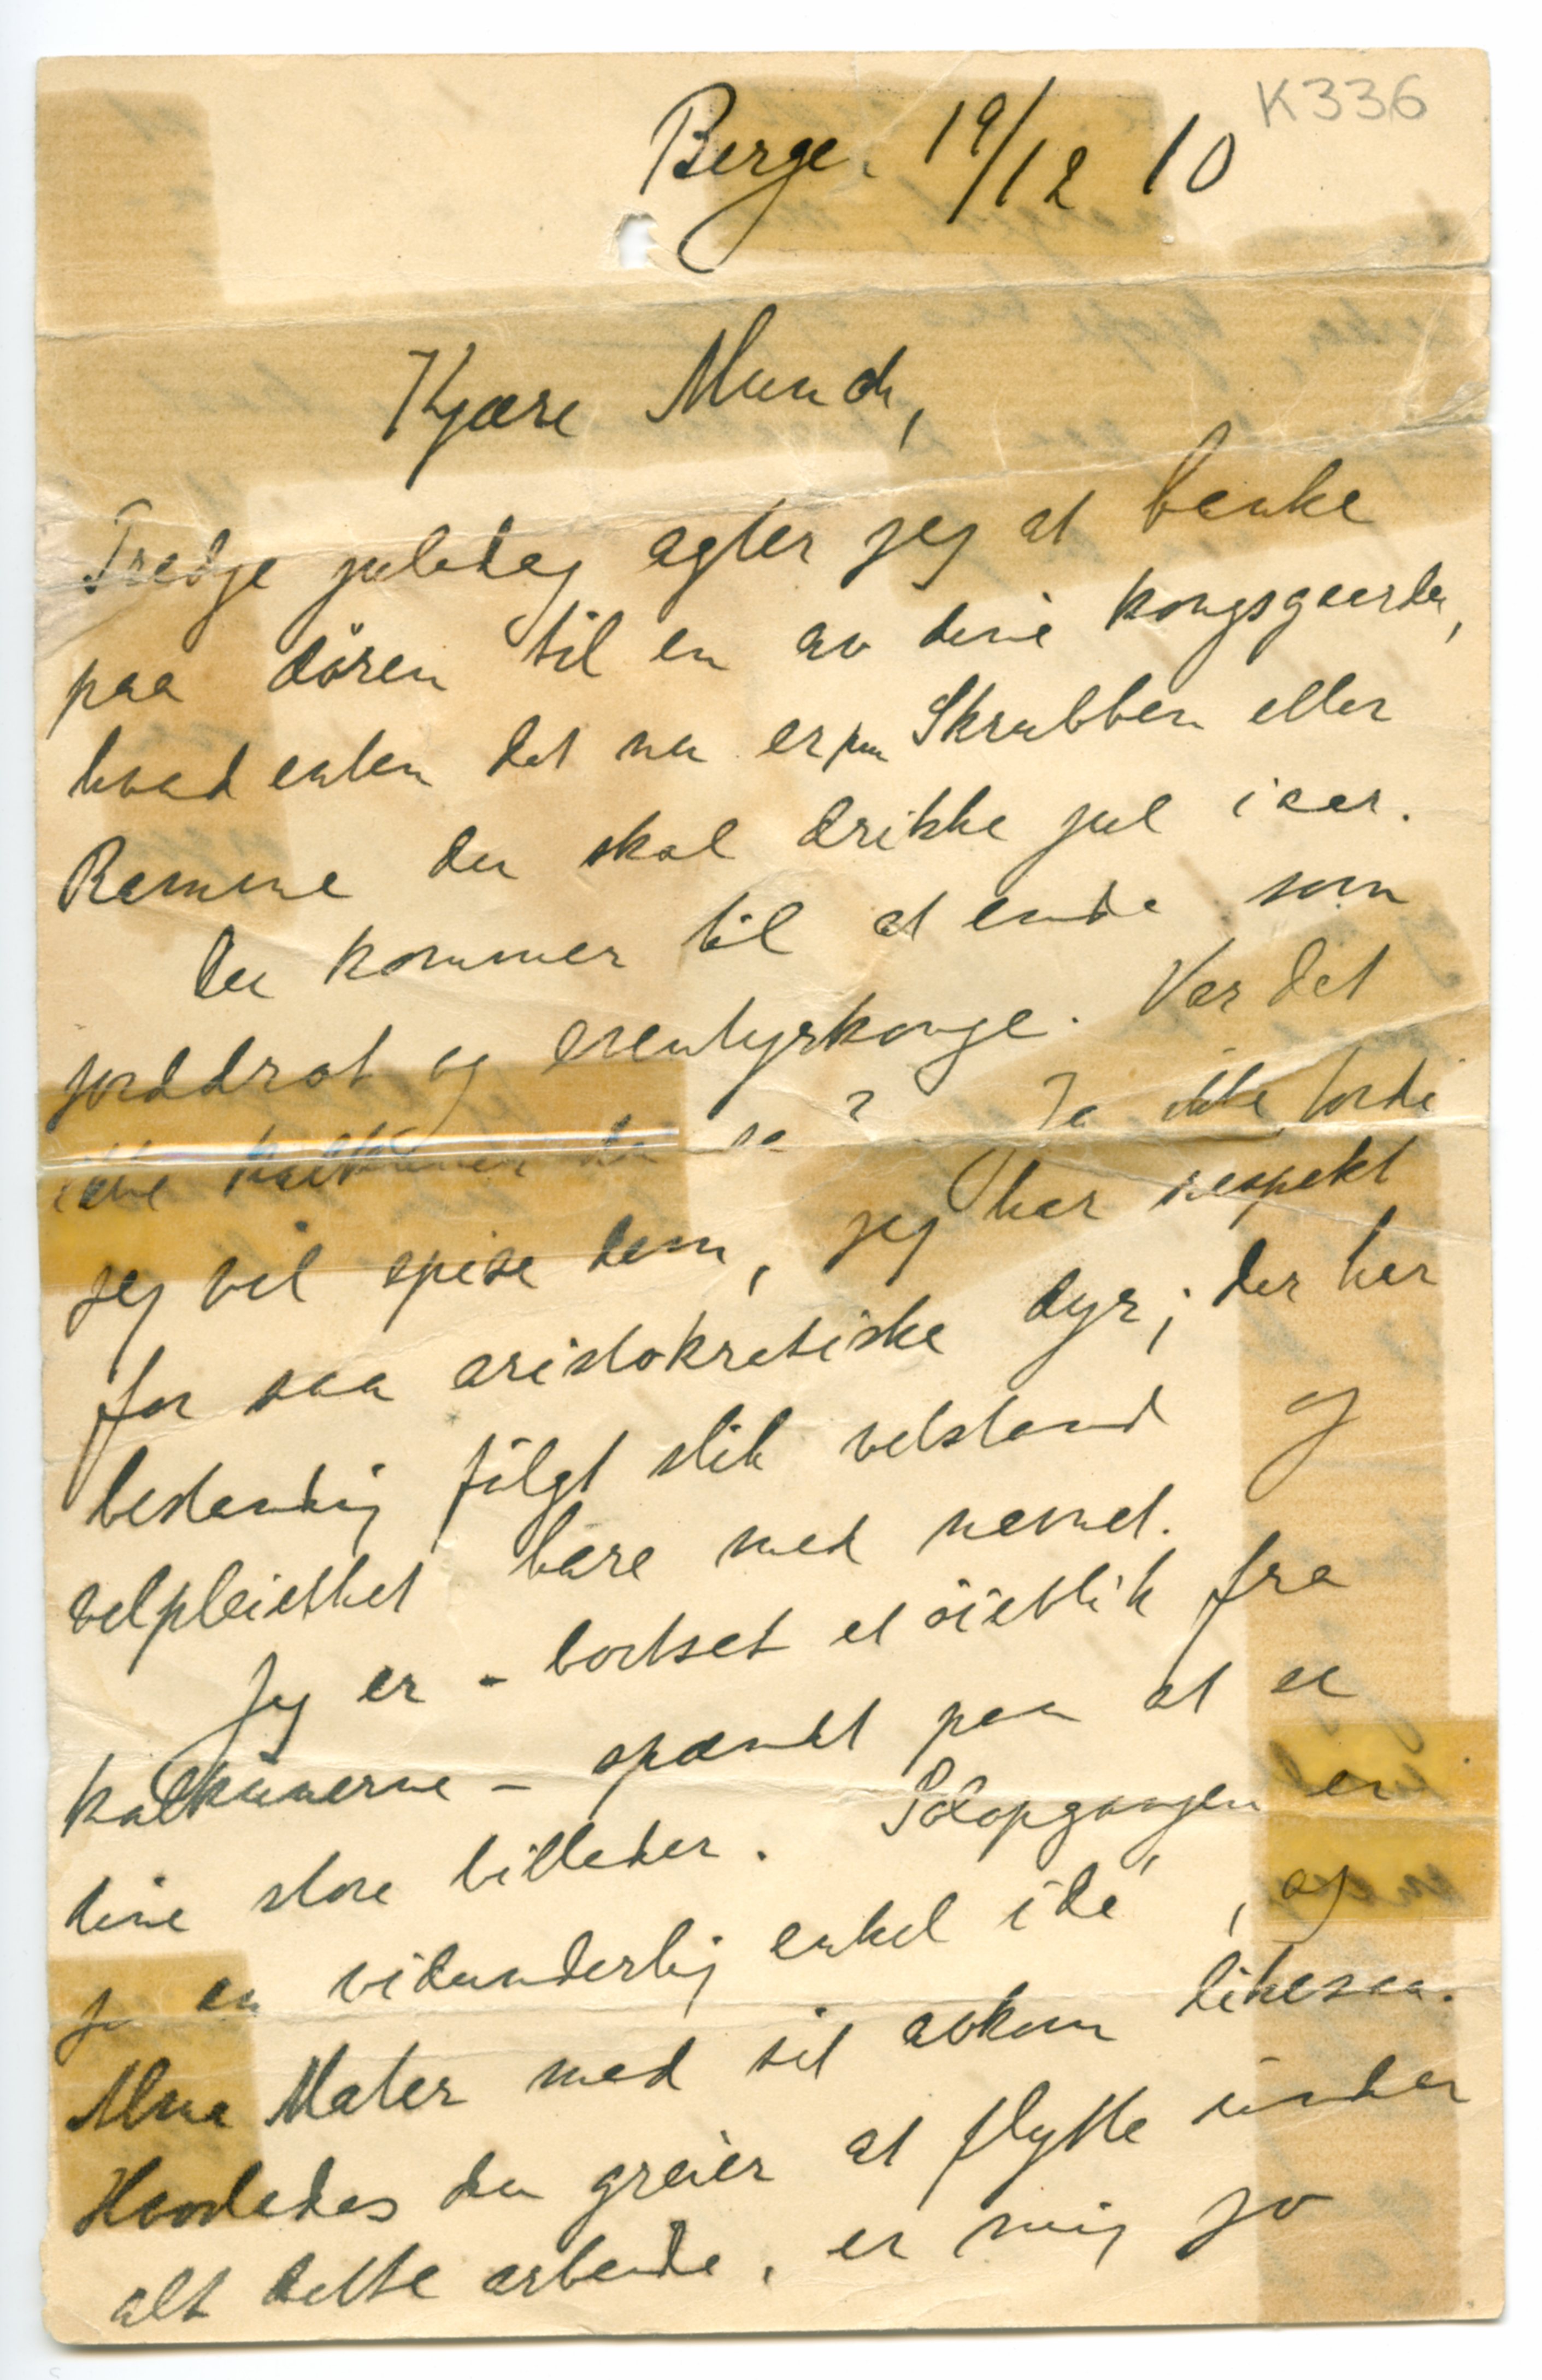 K336
Berge. 19/12 10
Kjære Munch,
Tredje juledag agter jeg at banke
paa døren til en av dine kongsgaarder,
hvad enten det nu er paa Skrubben eller
Ramme du skal drikke jul iaar.
Du kommer til at ende som
jorddrot og eventyrkonge. Var det
ikke kalkuner du sa? Ja ikke fordi
jeg vil spise dem, jeg har respekt
for saa aristokratiske dyr; der har
bestandig fülgt slik velstand og
velpleiethet bare med navnet.
Jeg er – bortset et öieblik fra
kalkunerne – spændt paa at se
dine store billeder. Solopgangen er
jo en vidunderlig enkel idé, og
Alma Mater med sit avkom likesaa.
Hvorledes du greier at flytte under
alt dette arbeide, er mig jo